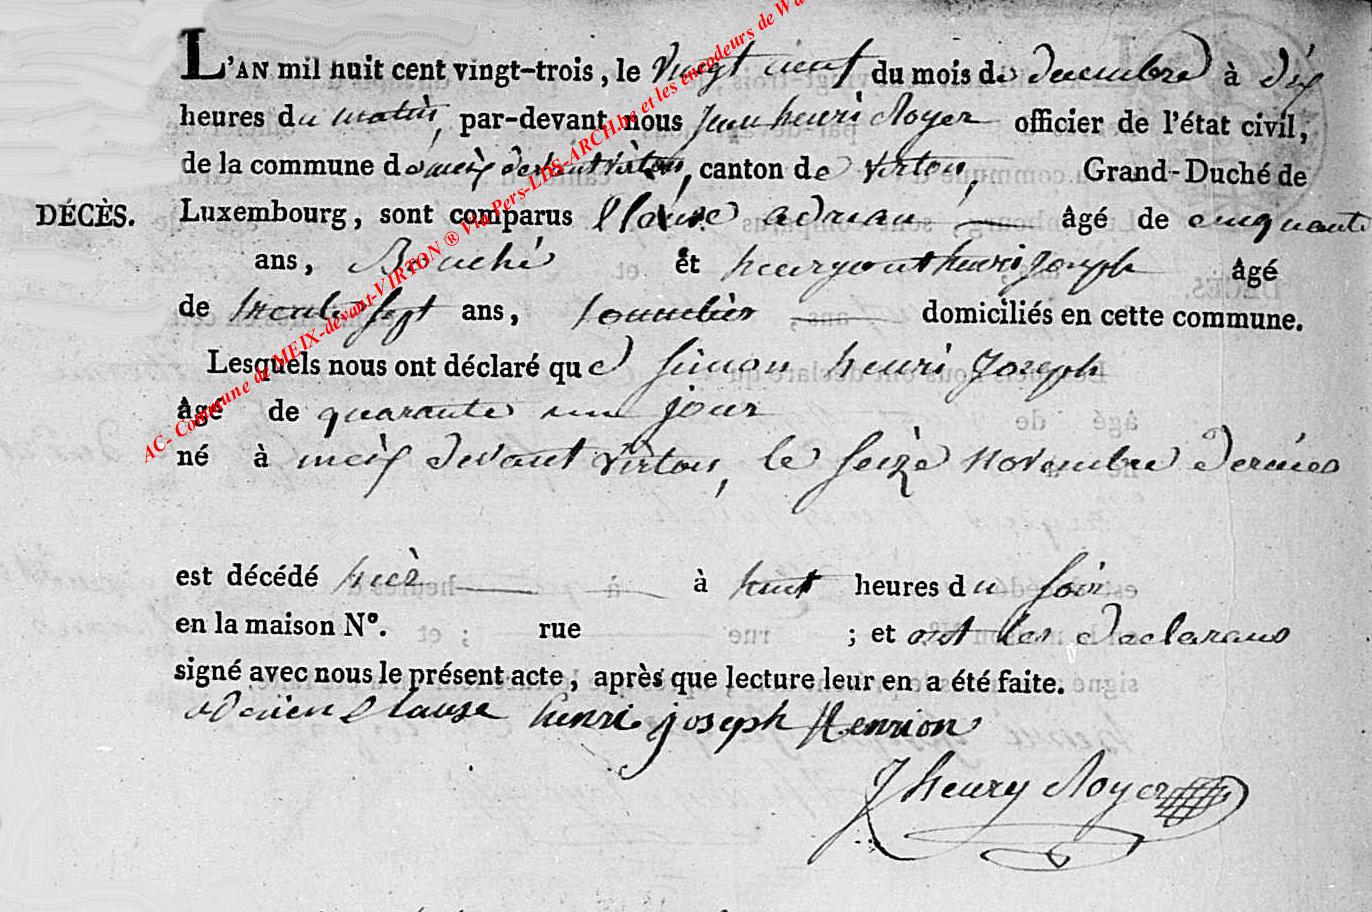 L'AN mil huit cent vingt-trois, le vingt neuf du mois de decembre à dix
heures du matin, par-devant nous Jean henri Royer officier de l'état civil,
de la commune de meix devant virton, canton de virton, Grand-Duché de
DÉCÈS. Luxembourg, sont comparus Clause adrien âgé de cinquante
ans, et henri joseph âgé
de trente sept ans, domiciliés en cette commune.
Lesquels nous ont déclaré que Simon henri Joseph
âgé de quarante un jour
né à meix devant virton, le seize novembre dernier
est décédé hier à huit heures du soir
en la maison N°. rue ; et ont les declarans
signé avec nous le présent acte, après que lecture leur en a été faite.
adrien Clause henri joseph Henrion
J henry Royer
AC- Commune de MEIX-devant-VIRTON ® Via Pers-LDS-ARCH.be et les encodeurs de Wa